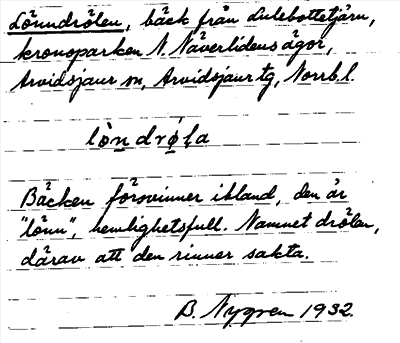 Lönndrölen, bäck från Lulebottetjärn,
kronoparken N. Näverlidens ägor,
Arvidsjaur sn, Arvidsjaur tg, Norrb.l.
lòndrǫ́la
Bäcken försvinner ibland, den är
"lönn", hemlighetsfull. Namnet drölen,
därav att den rinner sakta.
B. Nygren 1932.